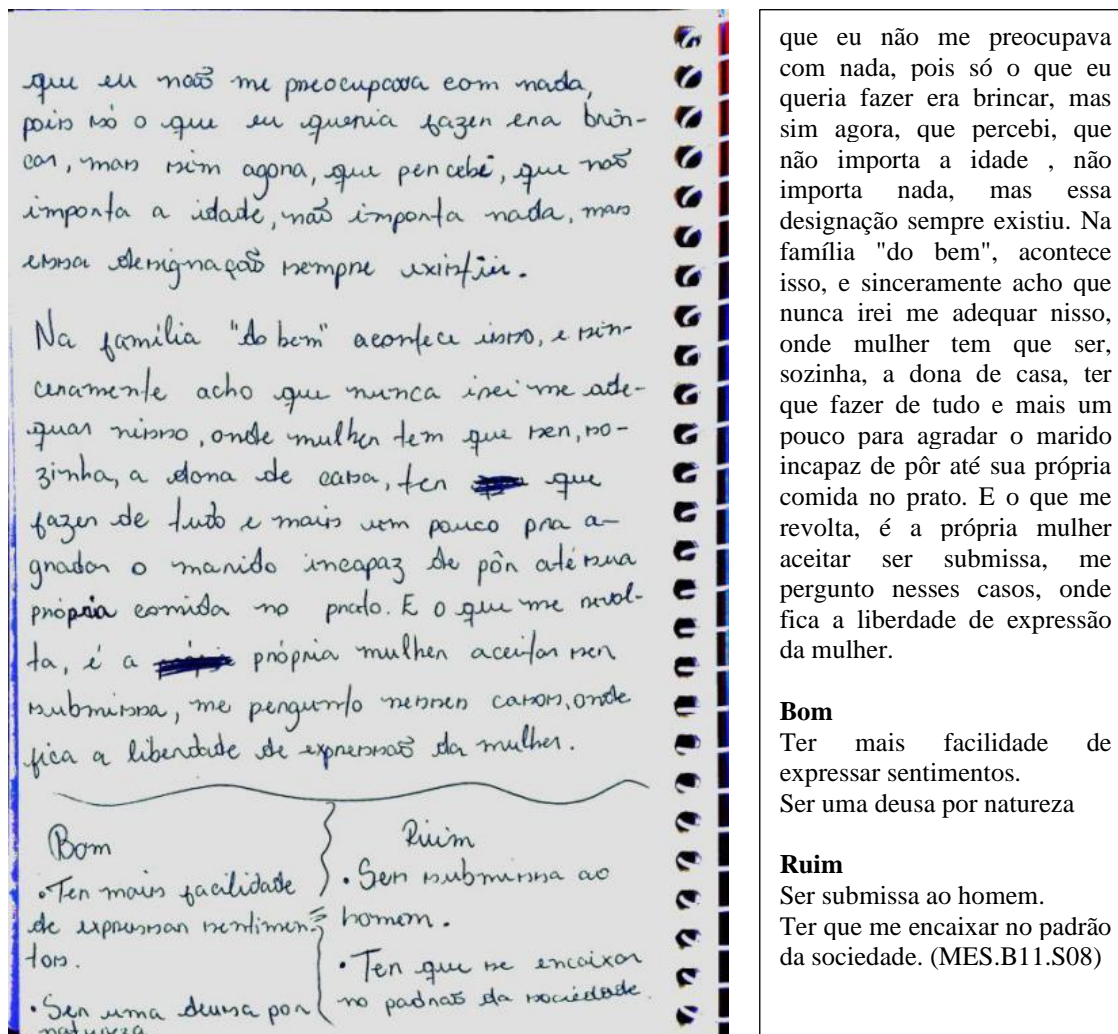 que eu não me preocupava com nada,
pois só o que eu queria fazer era brin-
car, mas sim agora, que percebi, que não
importa a idade, não importa nada, mas
essa designação sempre existiu.
Na família "do bem" acontece isso, e sin-
ceramente acho que nunca irei me ade-
quar nisso, onde mulher tem que ser, so-
zinha, a dona de casa, ter que
fazer de tudo e mais um pouco pra a-
gradar o marido incapaz de pôr até sua
própria comida no prato. E o que me revol-
ta, é a própria mulher aceitar ser
submissa, me pergunto nesses casos, onde
fica a liberdade de expressão da mulher.
Bom
• Ter mais facilidade
de expressar sentimen-
tos.
• Ser uma deusa por
natureza
Ruim
• Ser submissa ao
homem.
• Ter que se encaixar
no padrão da sociedade.
que eu não me preocupava
com nada, pois só o que eu
queria fazer era brincar, mas
sim agora, que percebi, que
não importa a idade , não
importa nada, mas essa
designação sempre existiu. Na
família "do bem", acontece
isso, e sinceramente acho que
nunca irei me adequar nisso,
onde mulher tem que ser,
sozinha, a dona de casa, ter
que fazer de tudo e mais um
pouco para agradar o marido
incapaz de pôr até sua própria
comida no prato. E o que me
revolta, é a própria mulher
aceitar ser submissa, me
pergunto nesses casos, onde
fica a liberdade de expressão
da mulher.
Bom
Ter mais facilidade de
expressar sentimentos.
Ser uma deusa por natureza
Ruim
Ser submissa ao homem.
Ter que me encaixar no padrão
da sociedade. (MES.B11.S08)